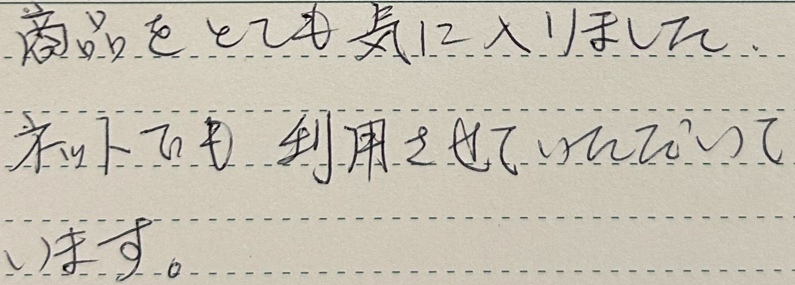 商品をとても気に入りました.
ネットでも 利用させていただいて
います。